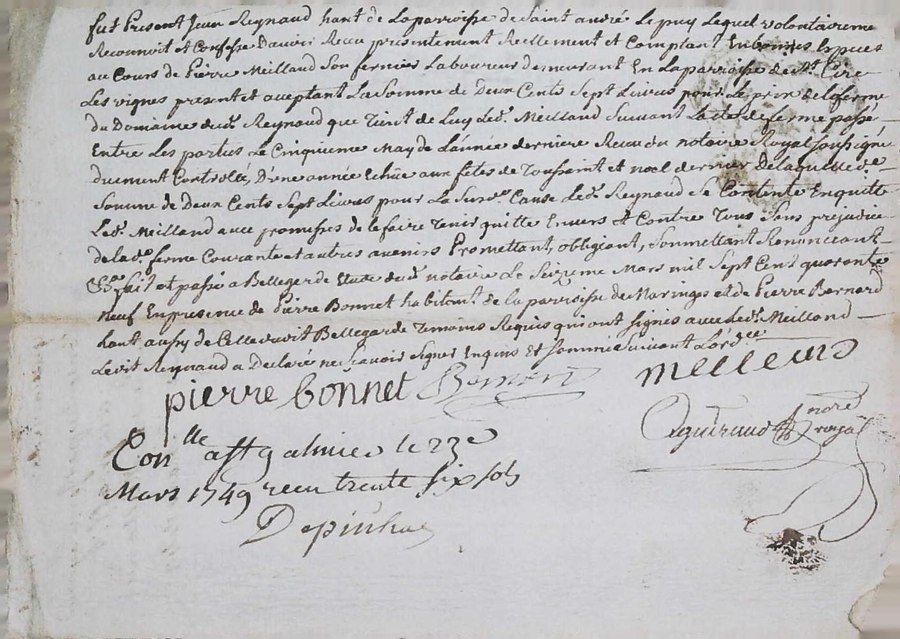 fut Present Jean Reynaud hant de La parroisse de Saint andré Le puy Lequel volontaireme
Reconnoit et Confesse D'auoir Receu presentement Reellement et Comptant En bonnes Espuces
au Cours de Pierre Meilland Son fermier Laboureur demeurant En La parroisse de st Cire
Les vignes present et aceptant La Somme de Deux Cents Sept Liures pour Le prix de La ferme
du Domaine dud. Reynaud que Tient de Luy Led. Meilland Suiuant Lacte de ferme passé
Entre Les parties Le Cinquieme May de Lannée derniere Receu du notaire Royal Soussigné
duement Controllé, D'une année Echüe aux fêtes de Toussaint et noel dernier De laquelle de
Somme de Deux Cents Sept Liures pour La Sus de Cause Led. Reynaud Se Contente En quitte
Led. Meilland auec promesses de Le faire Tenir quitte Enuers et Contre Tous Sans prejudice
de La de ferme Courante et autres auenirs Promettant, obligeant, Soummettant Renonceant
fait et passé a Bellegarde Etude dud. notaire Le Seizieme Mars mil Sept Cent quarente
neuf En presence de Pierre Bonnet habitant de La parroisse de Maringe et de Pierre Bernard
hant aussy de Celle dudit Bellegarde Temoins Requis qui ont Signés auec Led. Meilland
Ledit Reynaud a Declaré ne Sauoir Signer Enquis Et Sommé Suiuant L'ord ce
pierre bonnet Bernard melleurs
nore royal
Con lle a st galmier le 23e
Mars 1749 receu trente six sols